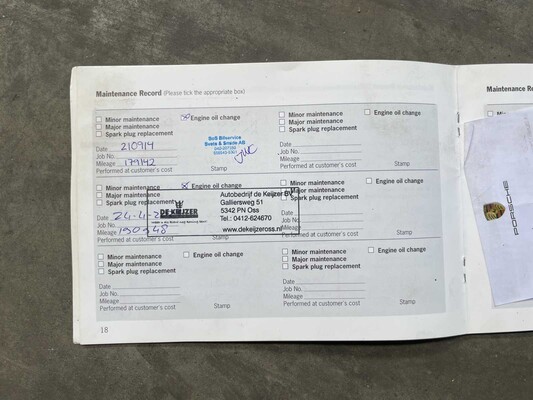 Maintenance Record (Please tick the appropriate box)
Minor maintenance
Engine oil change
Major maintenance
Spark plug replacement
Date 210914
Job No.
Mileage 179142
Performed at customer's cost
Stamp
Minor maintenance
Engine oil change
Major maintenance
Spark plug replacement
Date
Job No.
Mileage
Performed at customer's cost
Stamp
Minor maintenance
Engine oil change
Major maintenance
Spark plug replacement
Date 24-4-2
Job No.
Mileage
DE KEIJZER
Autobedrijf de Keijzer BV
Galliersweg 51
5342 PN Oss
Tel.: 0412-624670
www.dekeijzeross.nl
Engine oil change
Minor maintenance
Engine oil change
Major maintenance
Spark plug replacement
Date
Job No.
Mileage
Performed at customer's cost
Stamp
Minor maintenance
Engine oil change
Major maintenance
Spark plug replacement
Date
Job No.
Mileage
Performed at customer's cost
Stamp
18
Maintenance R
PORSCHE